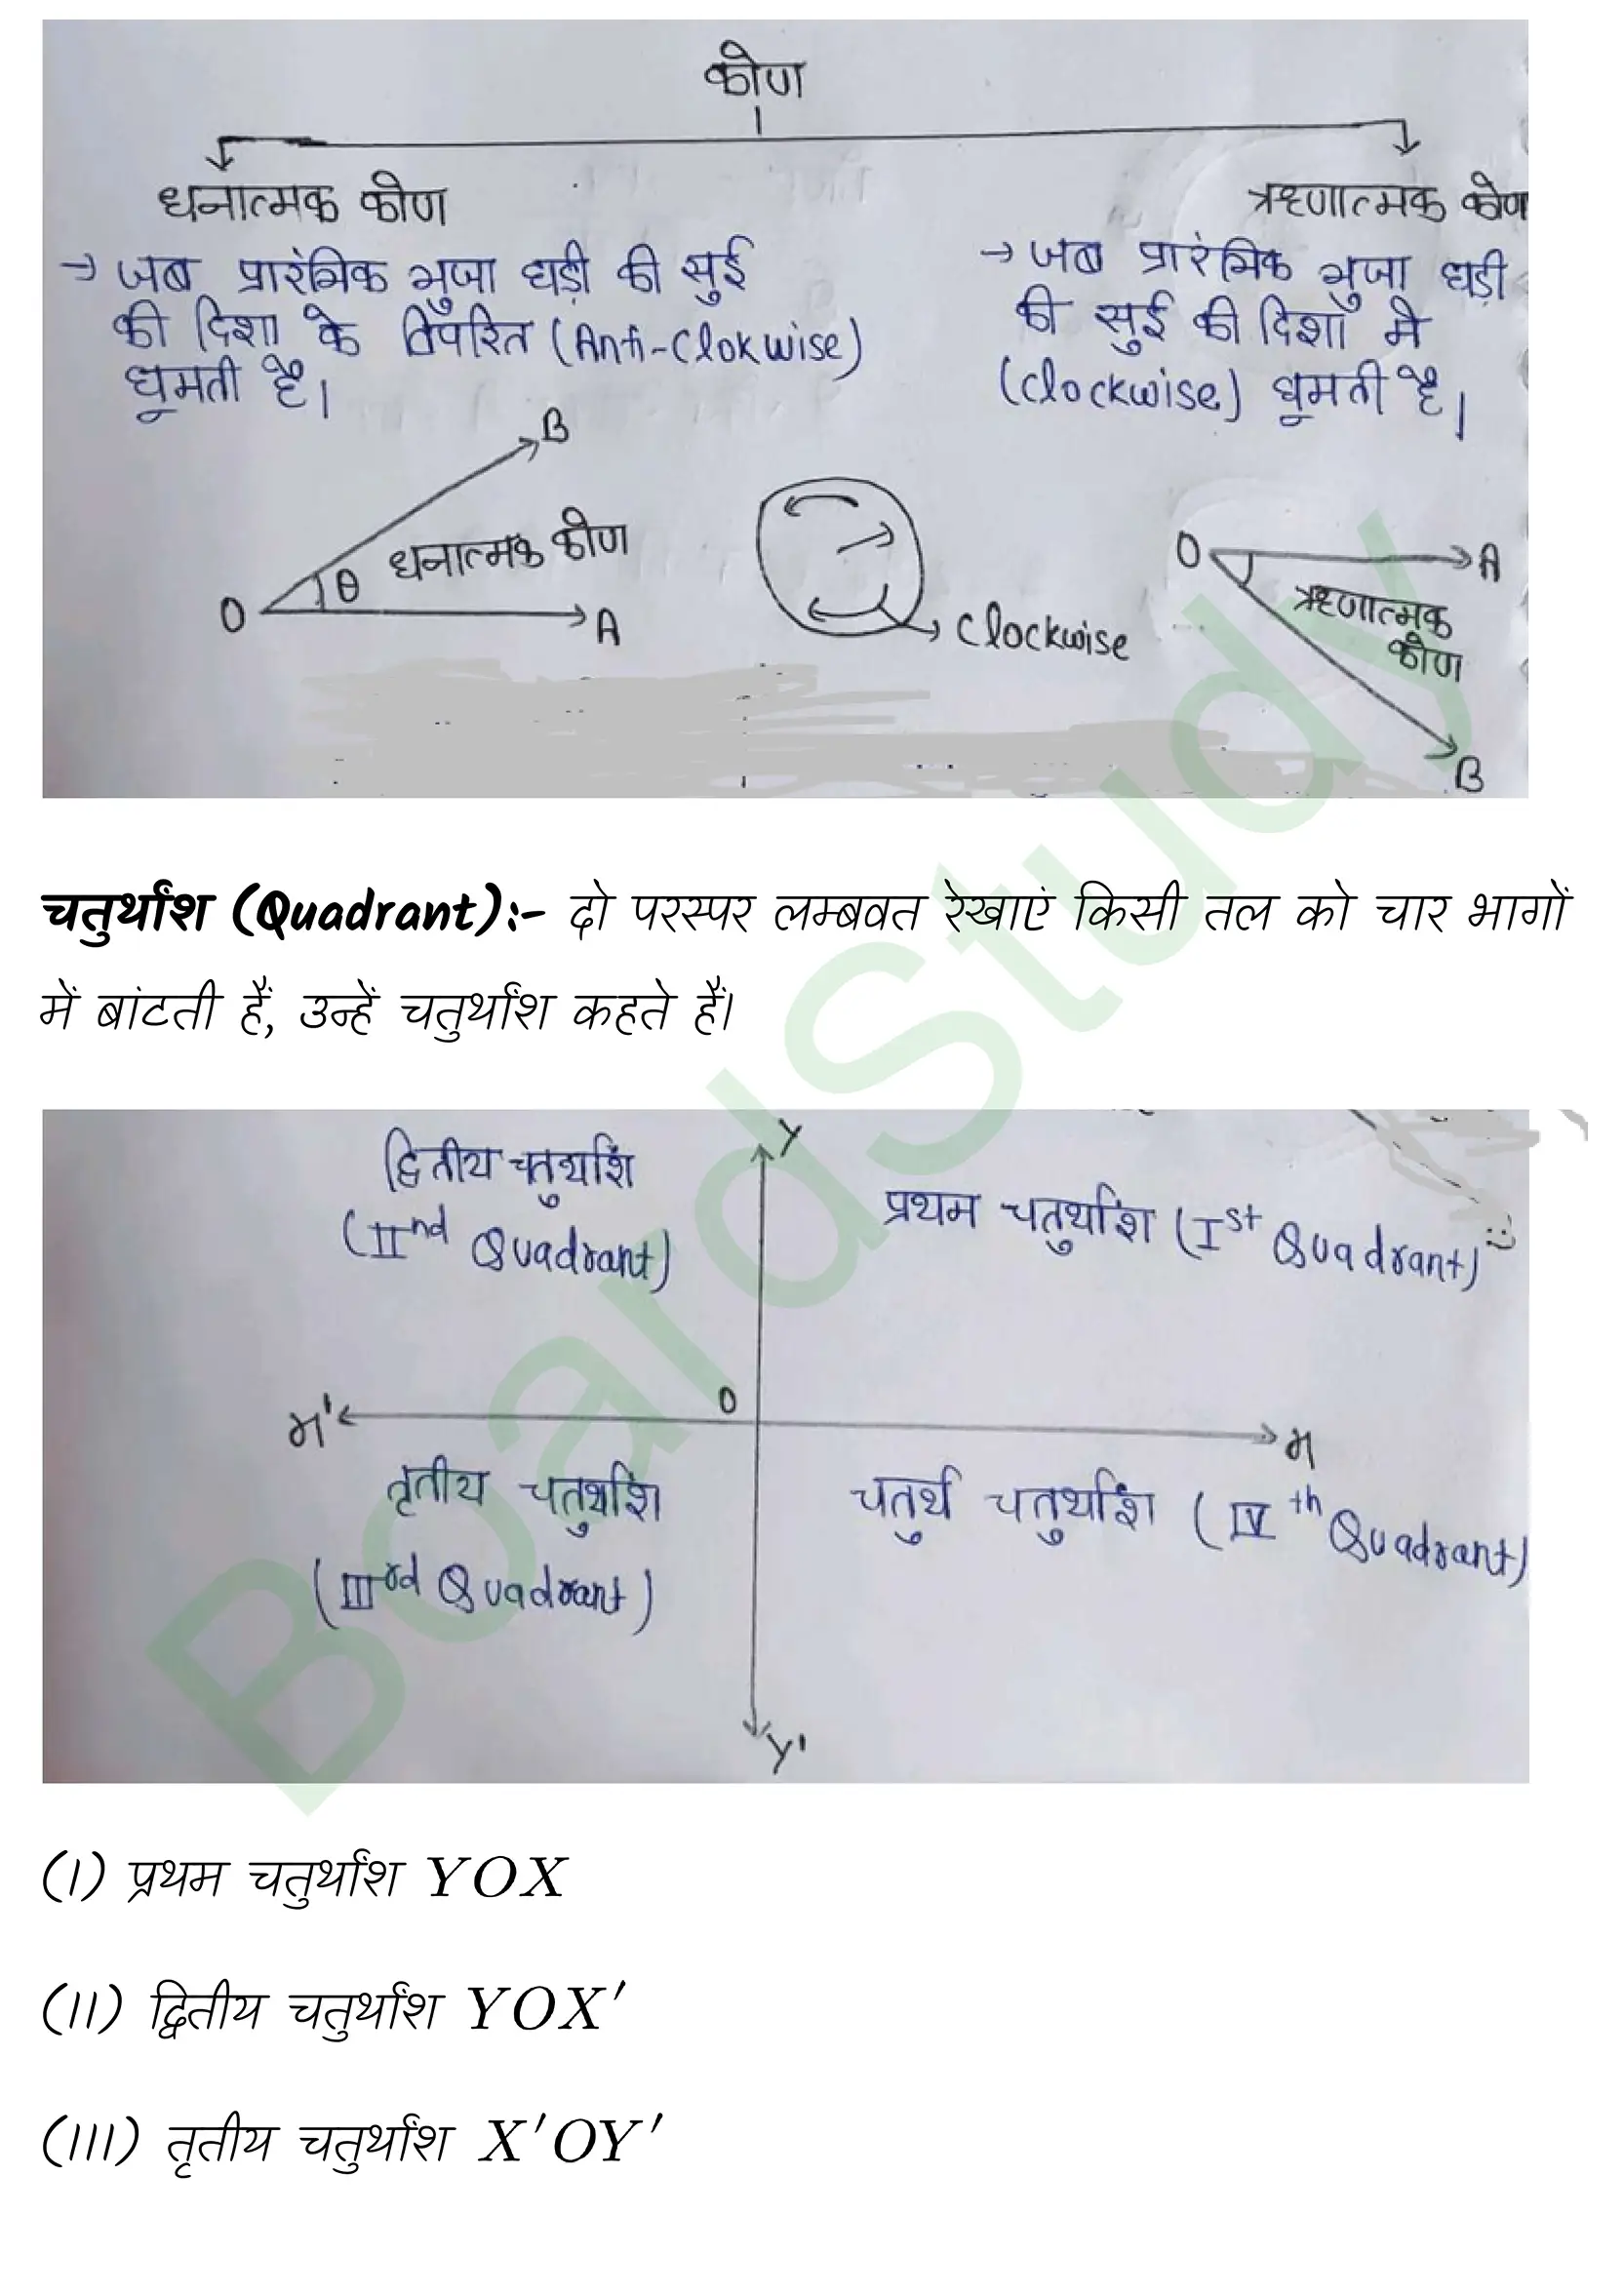 कोण
धनात्मक कोण
ऋणात्मक कोण
→ जब प्रारंभिक भुजा घड़ी की सुई
की दिशा के विपरित (Anti-Clokwise)
घूमती है।
→ जब प्रारंभिक भुजा घड़ी
की सुई की दिशा मे
(clockwise) घूमती है।
B
धनात्मक कोण
θ
O
A
Clockwise
O
A
ऋणात्मक
कोण
B
चतुर्थांश (Quadrant):- दो परस्पर लम्बवत रेखाएं किसी तल को चार भागों
में बांटती हैं, उन्हें चतुर्थांश कहते हैं।
Y
द्वितीय चतुर्थांश
(IInd Quadrant)
प्रथम चतुर्थांश (Ist Quadrant)
O
X'
X
तृतीय चतुर्थांश
(IIIrd Quadrant)
चतुर्थ चतुर्थांश (IVth Quadrant)
Y'
(I) प्रथम चतुर्थांश YOX
(II) द्वितीय चतुर्थांश YOX′
(III) तृतीय चतुर्थांश X′OY′
BoardStudy